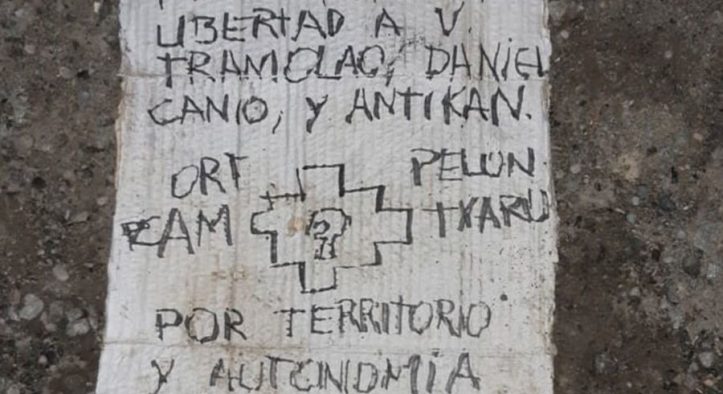 LIBERTAD A V.
TRAMOLAO, DANIEL
CANIO, Y ANTIKAN.
ORT PELON
CAM TXARU
POR TERRITORIO
Y AUTONOMÍA